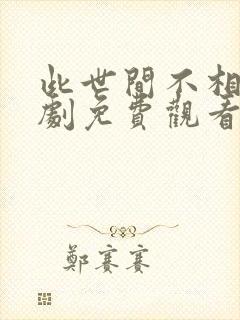 此世間不相
劇免費觀看
鄭賽賽